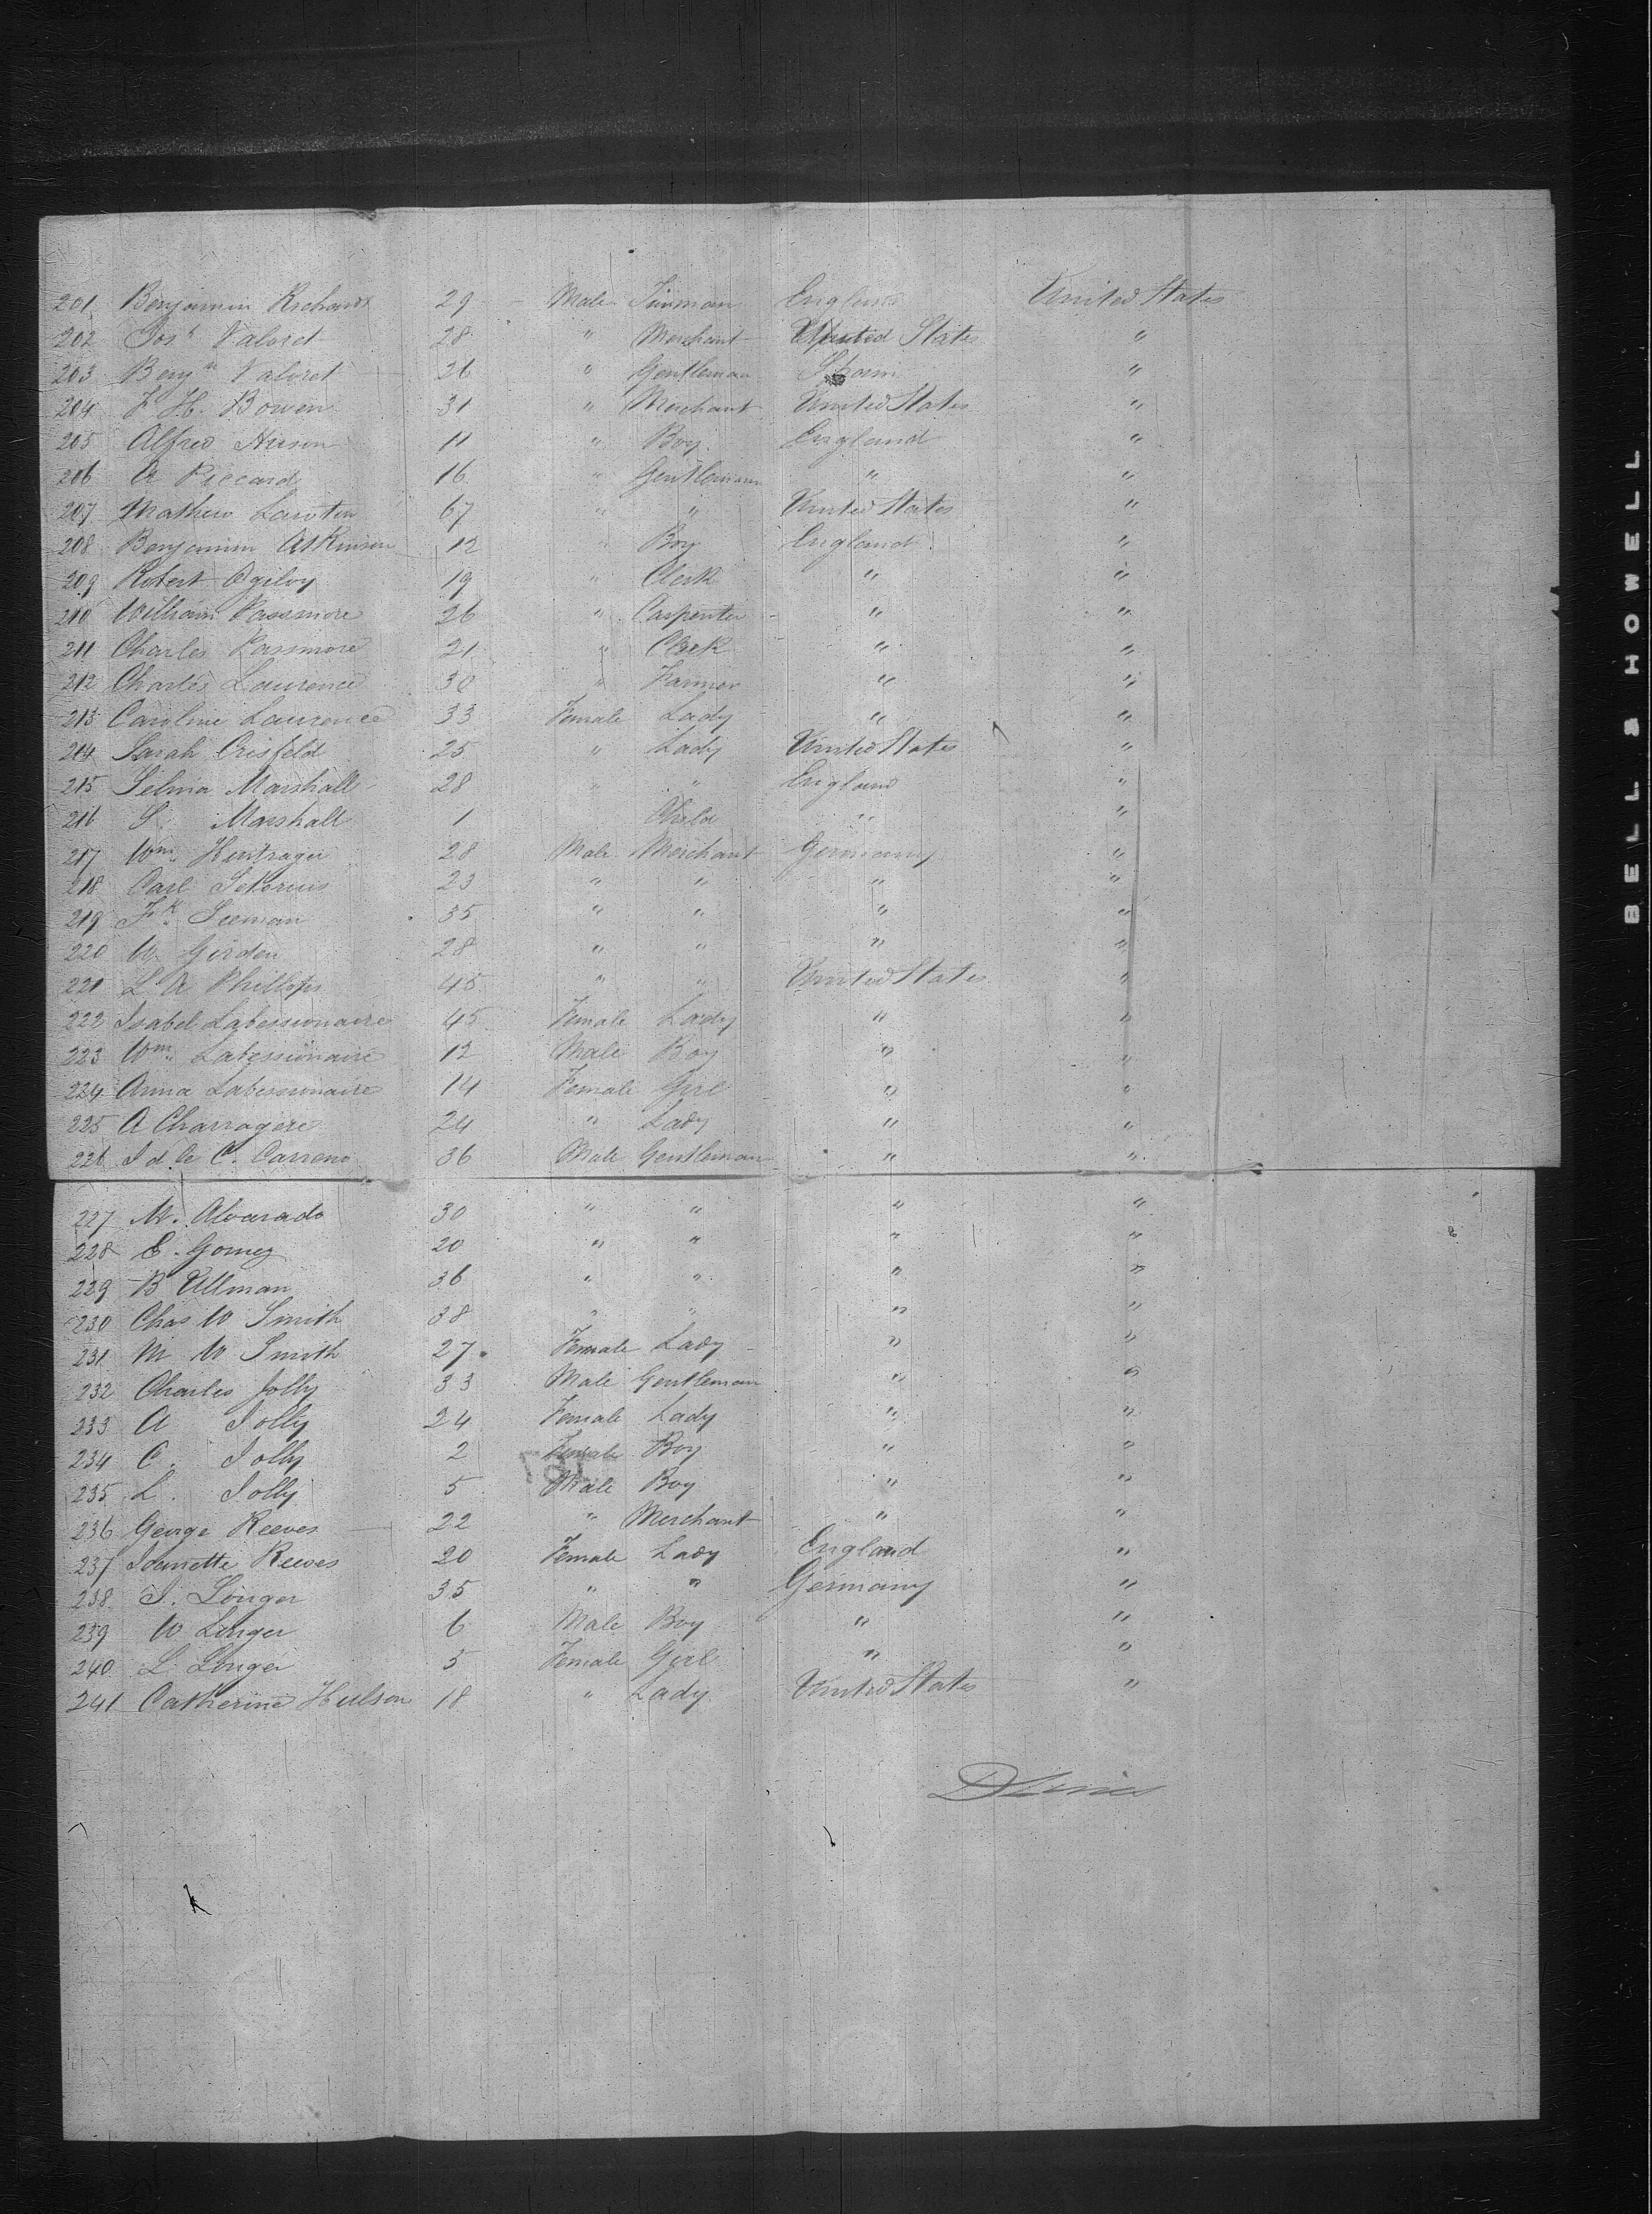 201 Benjamin Richards 29 Male Tinman England United States
202 Josh Valoret 28 " Merchant United States "
203 Benjn Valoret 26 " Gentleman Spain "
204 F H. Bowen 31 " Merchant United States "
205 Alfred Hirson 11 " Boy England "
206 A Piccard 16 " Gentleman " "
207 Mathew Lawton 67 " " United States "
208 Benjamin Atkinson 12 " Boy England "
209 Robert Ogilvy 19 " Clerk " "
210 William Passmore 26 " Carpenter " "
211 Charles Passmore 21 " Clerk " "
212 Charles Laurence 30 " Farmer " "
213 Caroline Laurence 33 Female Lady " "
214 Sarah Crisfeld 25 " Lady United States "
215 Selina Marshall 28 " " England "
216 S Marshall 1 Child " "
217 Wm Hentrager 28 Male Merchant Germany "
218 Carl 23 " " " "
219 Fk Seeman 35 " " " "
220 W. Girden 28 " " " "
221 L A Phillips 45 " " United States "
222 Isabel Labessionaire 45 Female Lady " "
223 Wm Labessionaire 12 Male Boy " "
224 Anna Labessionaire 14 Female Girl " "
225 A Charragere 24 " Lady " "
226 J d le C. Carreno 36 Male Gentleman " "
227 M. Alvarado 30 " " " "
228 E. Gomez 20 " " " "
229 B Ullman 36 " " " "
230 Chas W Smith 38 " " " "
231 M W Smith 27 Female Lady " "
232 Charles Jolly 33 Male Gentleman " "
233 A Jolly 24 Female Lady " "
234 C. Jolly 2 Female Boy " "
235 L. Jolly 5 Male Boy " "
236 George Reeves 22 " Merchant " "
237 Jeanette Reeves 20 Female Lady England "
238 S. Longer 35 " " Germany "
239 W Longer 6 Male Boy " "
240 L. Longer 5 Female Girl " "
241 Catherine Hulson 18 " Lady United States "
BELL & HOWELL